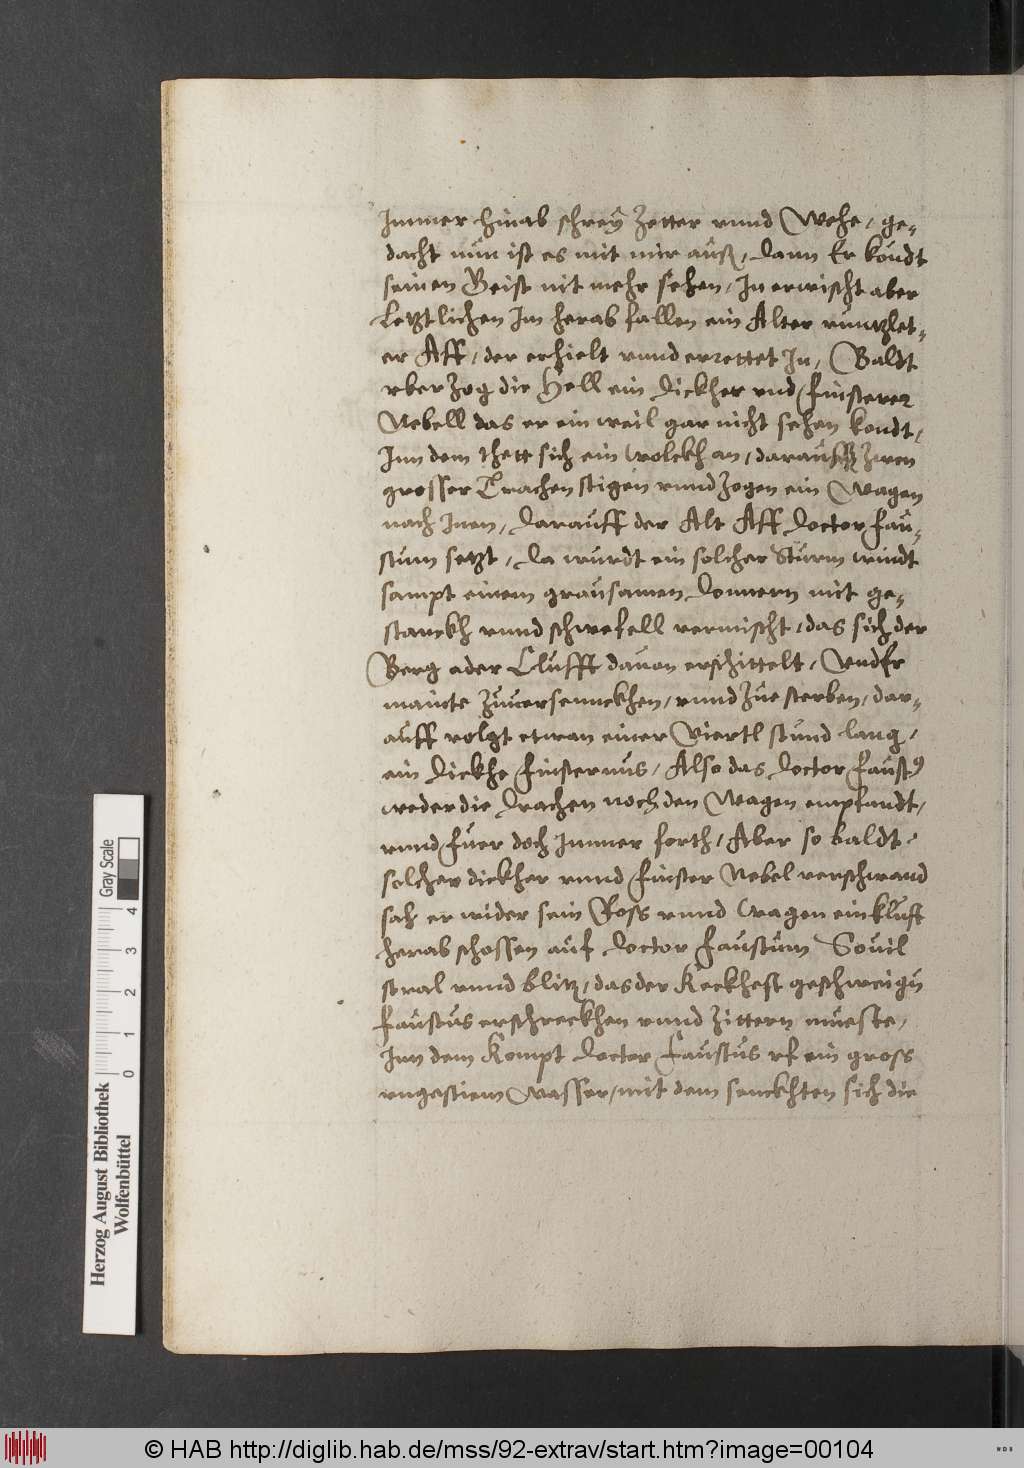 Immer hinab schrey Zetter vnnd Wehe, ge-
dacht nun ist es mit mir auß, dann Er kondt
seinen Geist nit mehr sehen, In erwischt aber
Letztlichen Im herab fallen ein Alter runtzlet-
er Aff, der erhielt vnnd errettet In, Baldt
vber Zog die Hell ein dickher vnd finsterer
Nebell das er ein weil gar nicht sehen kondt,
Inn dem thett sich ein wolckh an, darauß Zwen
grosser Trachen stigen vnnd Zogen ein Wagen
nach Inen, darauff der Alt Aff doctor Fau-
stum setzt, da wurdt ein solcher Sturm windt
sampt einem grausamen donnern mit ge-
stanckh vnnd schwefell vermischt, das sich der
Berg oder Clufft dauon erschittelt, Vnd Er
mainte Zuuersennckhen, vnnd Zue sterben, dar-
auff volgt etwan einer Viertl stund lang,
ein dickhe finsternus, Also das doctor Faustus
weder die drachen noch den Wagen empfandt,
vnnd fuer doch Immer forth, Aber so baldt
solcher dickher vnnd finster Nebel verschwand
sah er wider sein Ross vnnd Wagen ein kluft
herab schossen auf doctor Faustum Souil
stral vnnd blitz, das der Keckhest geschweign
Faustus erschreckhen vnnd Zittern mueste,
Inn dem Kompt doctor Faustus vf ein gross
vngestiem Wasser, mit dem senckhten sich die
Herzog August Bibliothek
Wolfenbüttel
Gray Scale
0 1 2 3 4
© HAB http://diglib.hab.de/mss/92-extrav/start.htm?image=00104
WDB